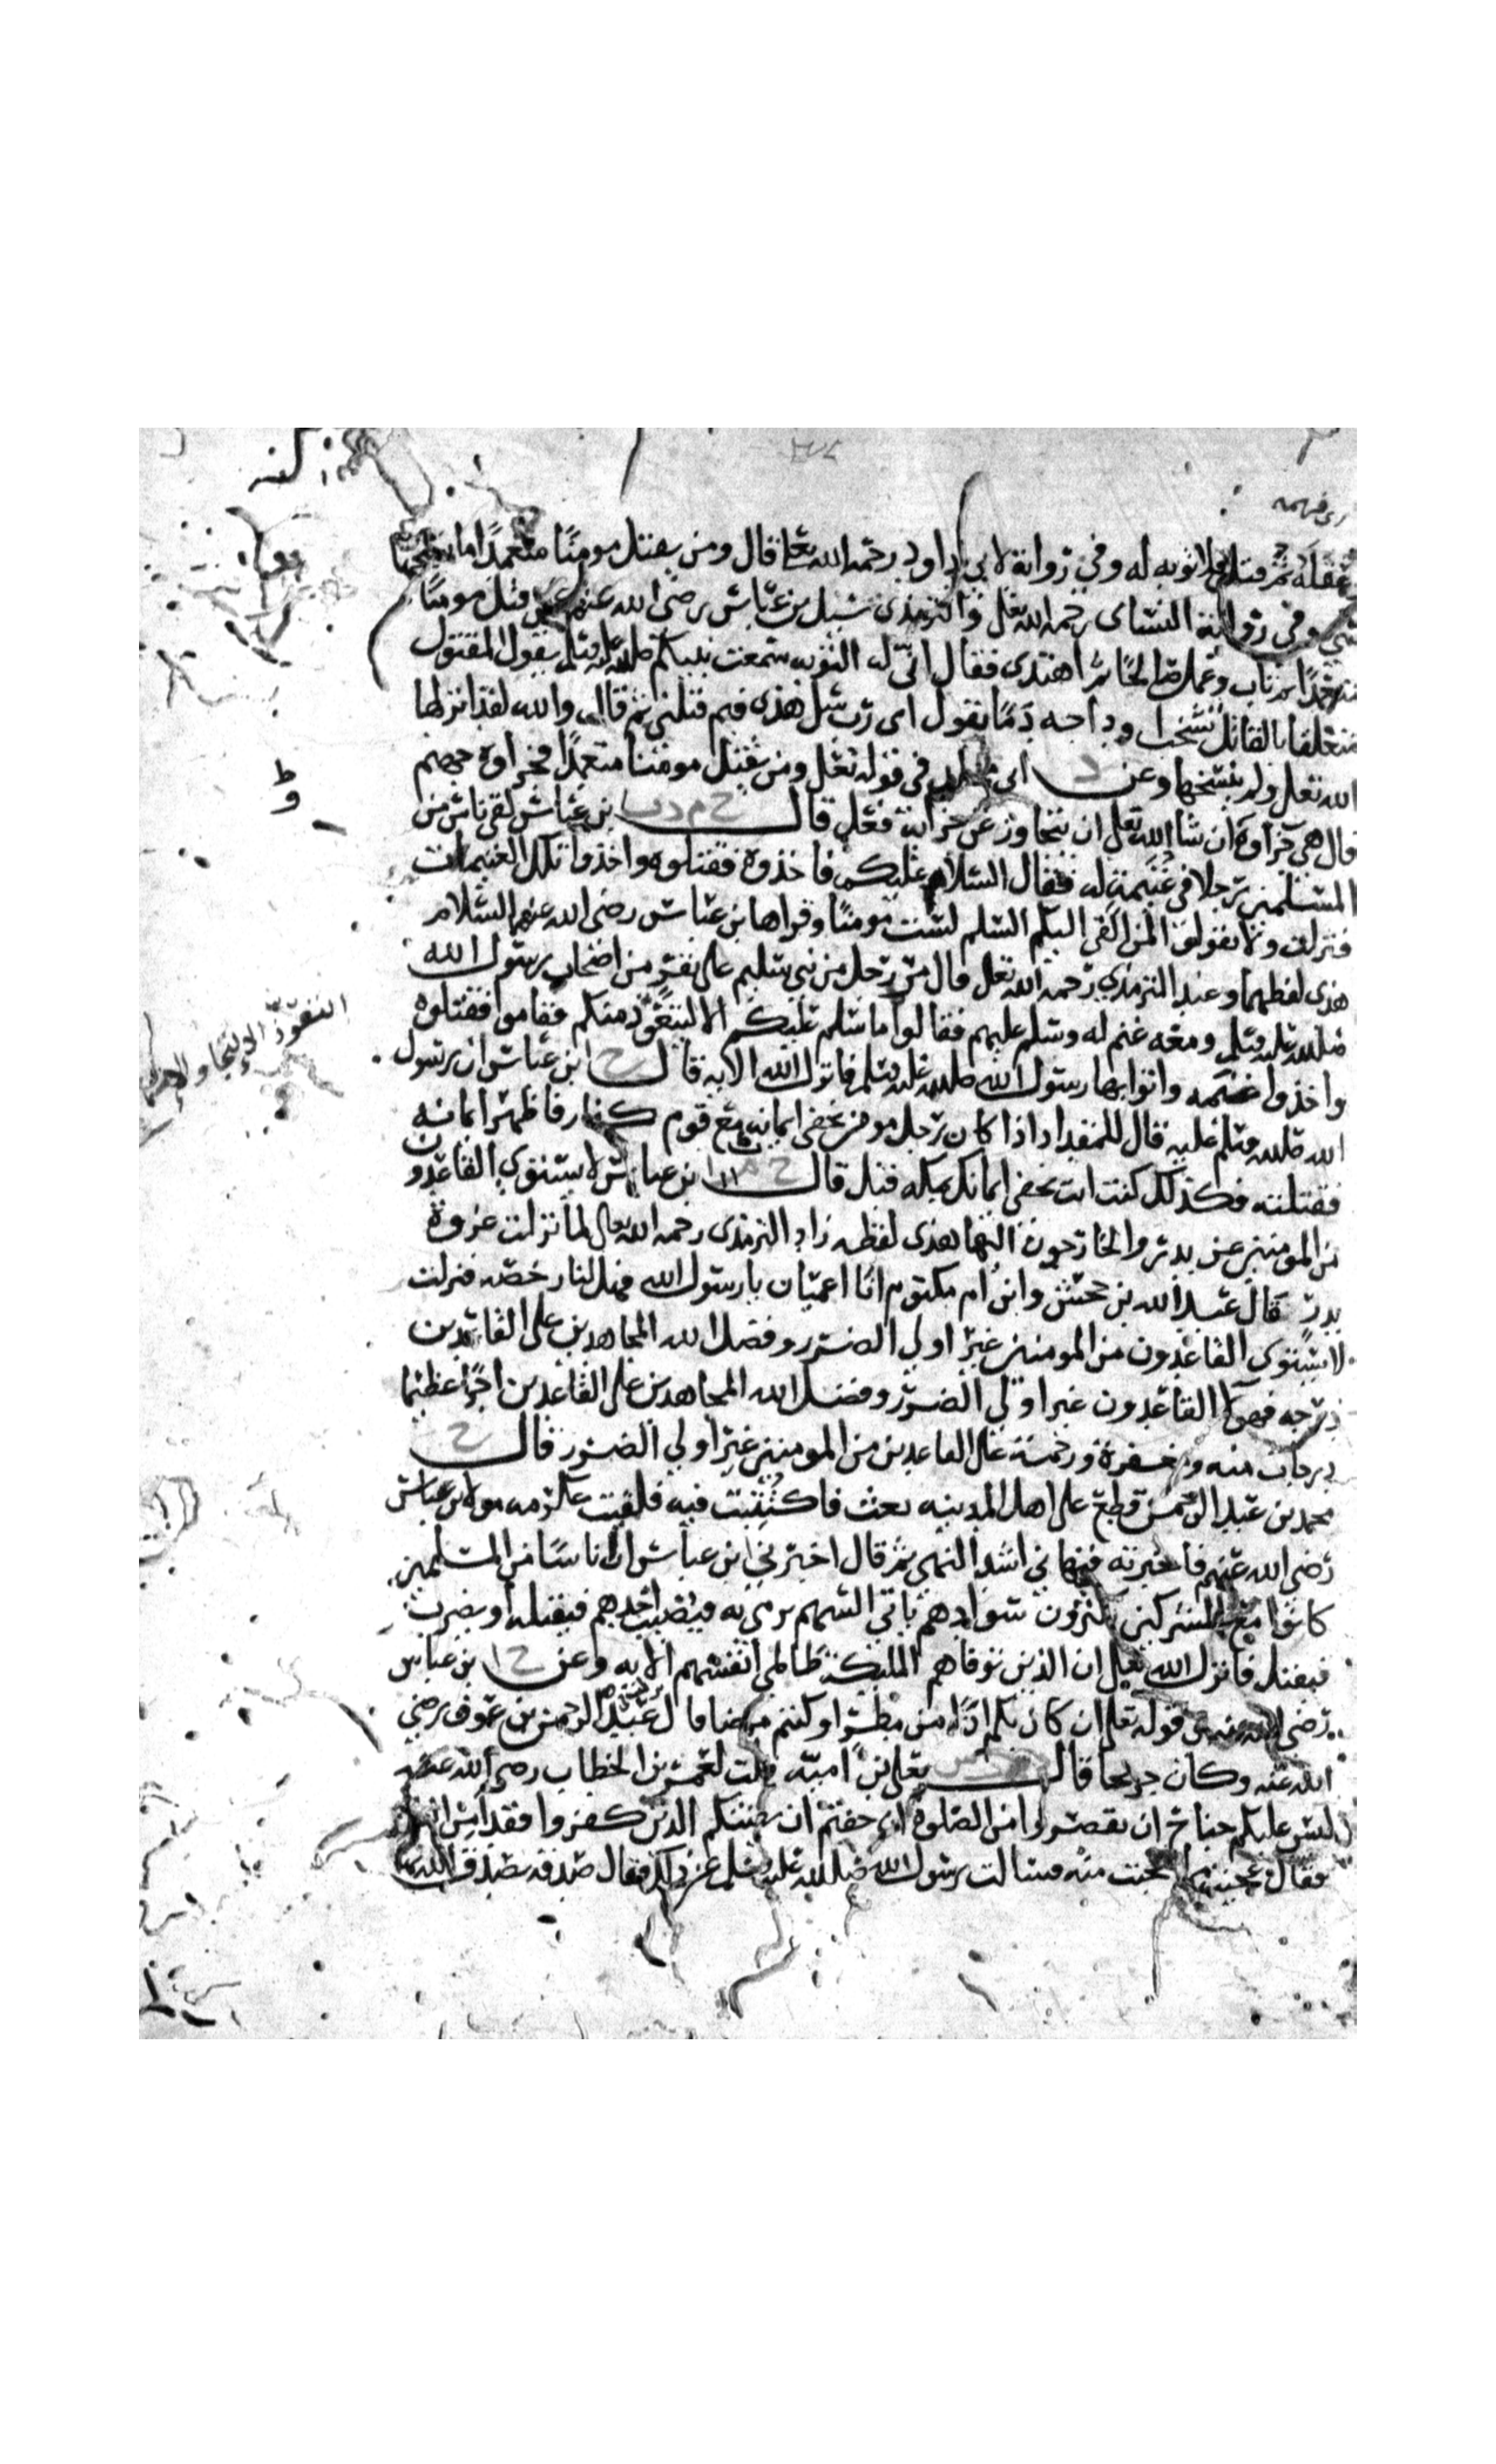 اى فهمه
عقله ثم قتل فلا توبه له وفي رواية لابي داود رحمه الله تعا قال ومن يقتل مومنا متعمدا ما نسخها
شي وفي رواية النساى رحمه الله تعلى والترمذى سيل بن عباس رضى الله عنهم عمن قتل مومنا
متعمدا ثم تاب وعمل صالحا ثم اهتدى فقال انى له التوبه سمعت نبيكم صلى الله عليه وسلم يقول المقتول
متعلقا بالقاتل تشخب اوداجه دما يقول اى رب سل هذى فيم قتلني ثم قال والله لقد انزلها
الله تعلى ولم ينسخها وعن د ابى مجلز في قوله تعلى ومن يقتل مومنا متعمدا فجزاوه جهنم
قال هي جزاوه ان شا الله تعلى ان يتجاوز عن جزايه فعل قال خ م د ت بن عباس لقى ناس من
المسلمين رجلا في غنيمة له فقال السلام عليكم فاخذوه فقتلوه واخذوا تلك الغنيمات
فنزلت ولا تقولوا لمن القى اليكم السلم لست مومنا وقراها بن عباس رضى الله عنهم السلام
هذى لفظهما وعند الترمذي رحمه الله تعلى قال مر رجل من بني سليم على نفر من اصحاب رسول الله
صلى الله عليه وسلم ومعه غنم له وسلم عليهم فقالوا ما سلم عليكم الا ليتعوذ منكم فقاموا فقتلوه
واخذوا غنمه واتوا بها رسول الله صلى الله عليه وسلم فانزل الله الايه قال خ ابن عباس ان رسول
الله صلى الله وسلم عليه قال للمقداد اذا كان رجل مومن يخفى ايمانه مع قوم كفار فاظهر ايمانه
فقتلته فكذلك كنت انت تخفى ايمانك بمكه قبل قال خ م بن عباس لا يستوي القاعدون
من المومنين عن بدر والخارجون اليها هذى لفظه زاد الترمذى رحمه الله تعالى لما نزلت غزوة
بدر قال عبد الله بن جحش وابن ام مكتوم انا اعميان يا رسول الله فهل لنا رخصه فنزلت
لا يستوي القاعدون من المومنين غير اولي الضرر وفضل الله المجاهدين على القاعدين
درجه فهولا القاعدون غير اولي الضرر وفضل الله المجاهدين على القاعدين اجرا عظيما
درجات منه ومغفرة ورحمة على القاعدين من المومنين غير اولي الضرر قال خ
محمد بن عبد الرحمن قطع على اهل المدينه بعث فاكتتبت فيه فلقيت عكرمه مولى بن عباس
رضى الله عنهم فاخبرته فنهاني اشد النهي ثم قال اخبرني ابن عباس ان ناسا من المسلمين
كانوا مع المشركين يكثرون سوادهم ياتي السهم يرمى به فيصيب احدهم فيقتله او يضرب
فيقتل فانزل الله تعلى ان الذين توفاهم المليكة ظالمي انفسهم الايه وعن خ ابن عباس
رضى الله عنهم في قوله تعلى ان كان بكم اذى من مطر او كنتم مرضى قال عبد الرحمن بن عوف رضي
الله عنه وكان جريحا قال يعلى بن اميه قلت لعمر بن الخطاب رضى الله عنه
ليس عليكم جناح ان تقصروا من الصلوة ان خفتم ان يفتنكم الذين كفروا فقد امن الناس
فقال عجبت مما عجبت منه فسالت رسول الله صلى الله عليه وسلم عن ذلك فقال صدقه تصدق الله بها
التعوذ الالتجا و